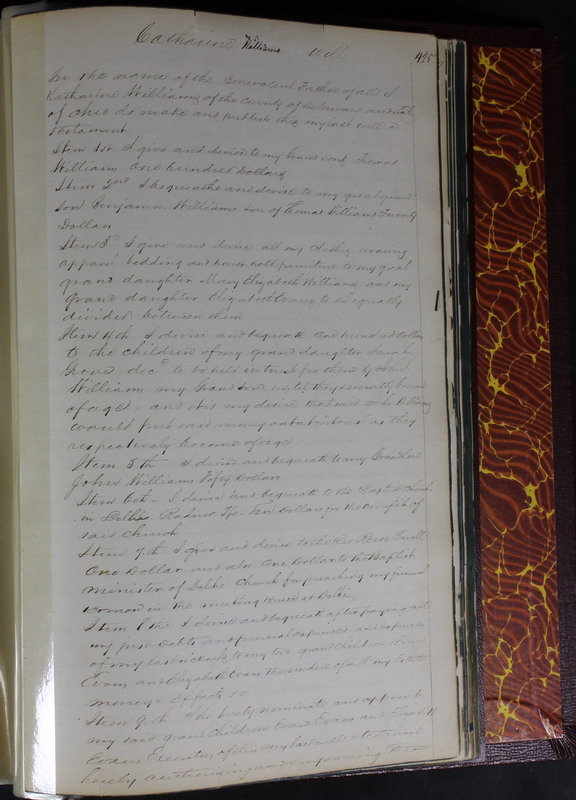 Catharine Williams Will
425
In the name of the Benevolent Father of all I
Katharine Williams of the County of Delaware and State
of Ohio do make and publish this my last will &
testament
Item 1st I give and devise to my Grand son Thomas
William One hundred Dollars
Item 2nd I bequeathe and devise to my great grand
son Benjamin Williams son of Thomas Williams Twenty
Dollars
Item 3d I give and devise all my clothing wearing
apparel bedding and house hold furniture to my great
grand daughter Mary Elizabeth Williams and my
grand daughter Elizabeth Evans to be equally
divided between them
Item 4th I devise and bequeath One hundred dollars
to the children of my grand daughter Sarah
Grove decd to be held in trust for them by John
Williams my Grand son until they severally become
of age and it is my desire that said John Williams
would put said money out at interest as they
respectively become of age
Item 5th I devise and bequeath to my Grand son
John Williams Fifty Dollars
Item 6th I devise and bequeath to the Baptist Church
in Delhi Radnor Tp. Ten Dollars for the benefit of
said Church
Item 7th I give and devise to the Rev Rees Powell
One Dollar and also One Dollar to the Baptist
minister of Delhi Church for preaching my funeral
sermon in the meeting house at Delhi
Item 8th I devise and bequeath after paying all
my just debts and funeral expenses and expenses
of my last sickness to my two grand children Evan
Evans and Elizabeth Evans the residue of all my estate
moneys Effects &c
Item 9th I do hereby nominate and appoint
my said grand children Evan Evans and Elizabeth
Evans Executors of this my last will & testament
hereby authorizing and empowering them